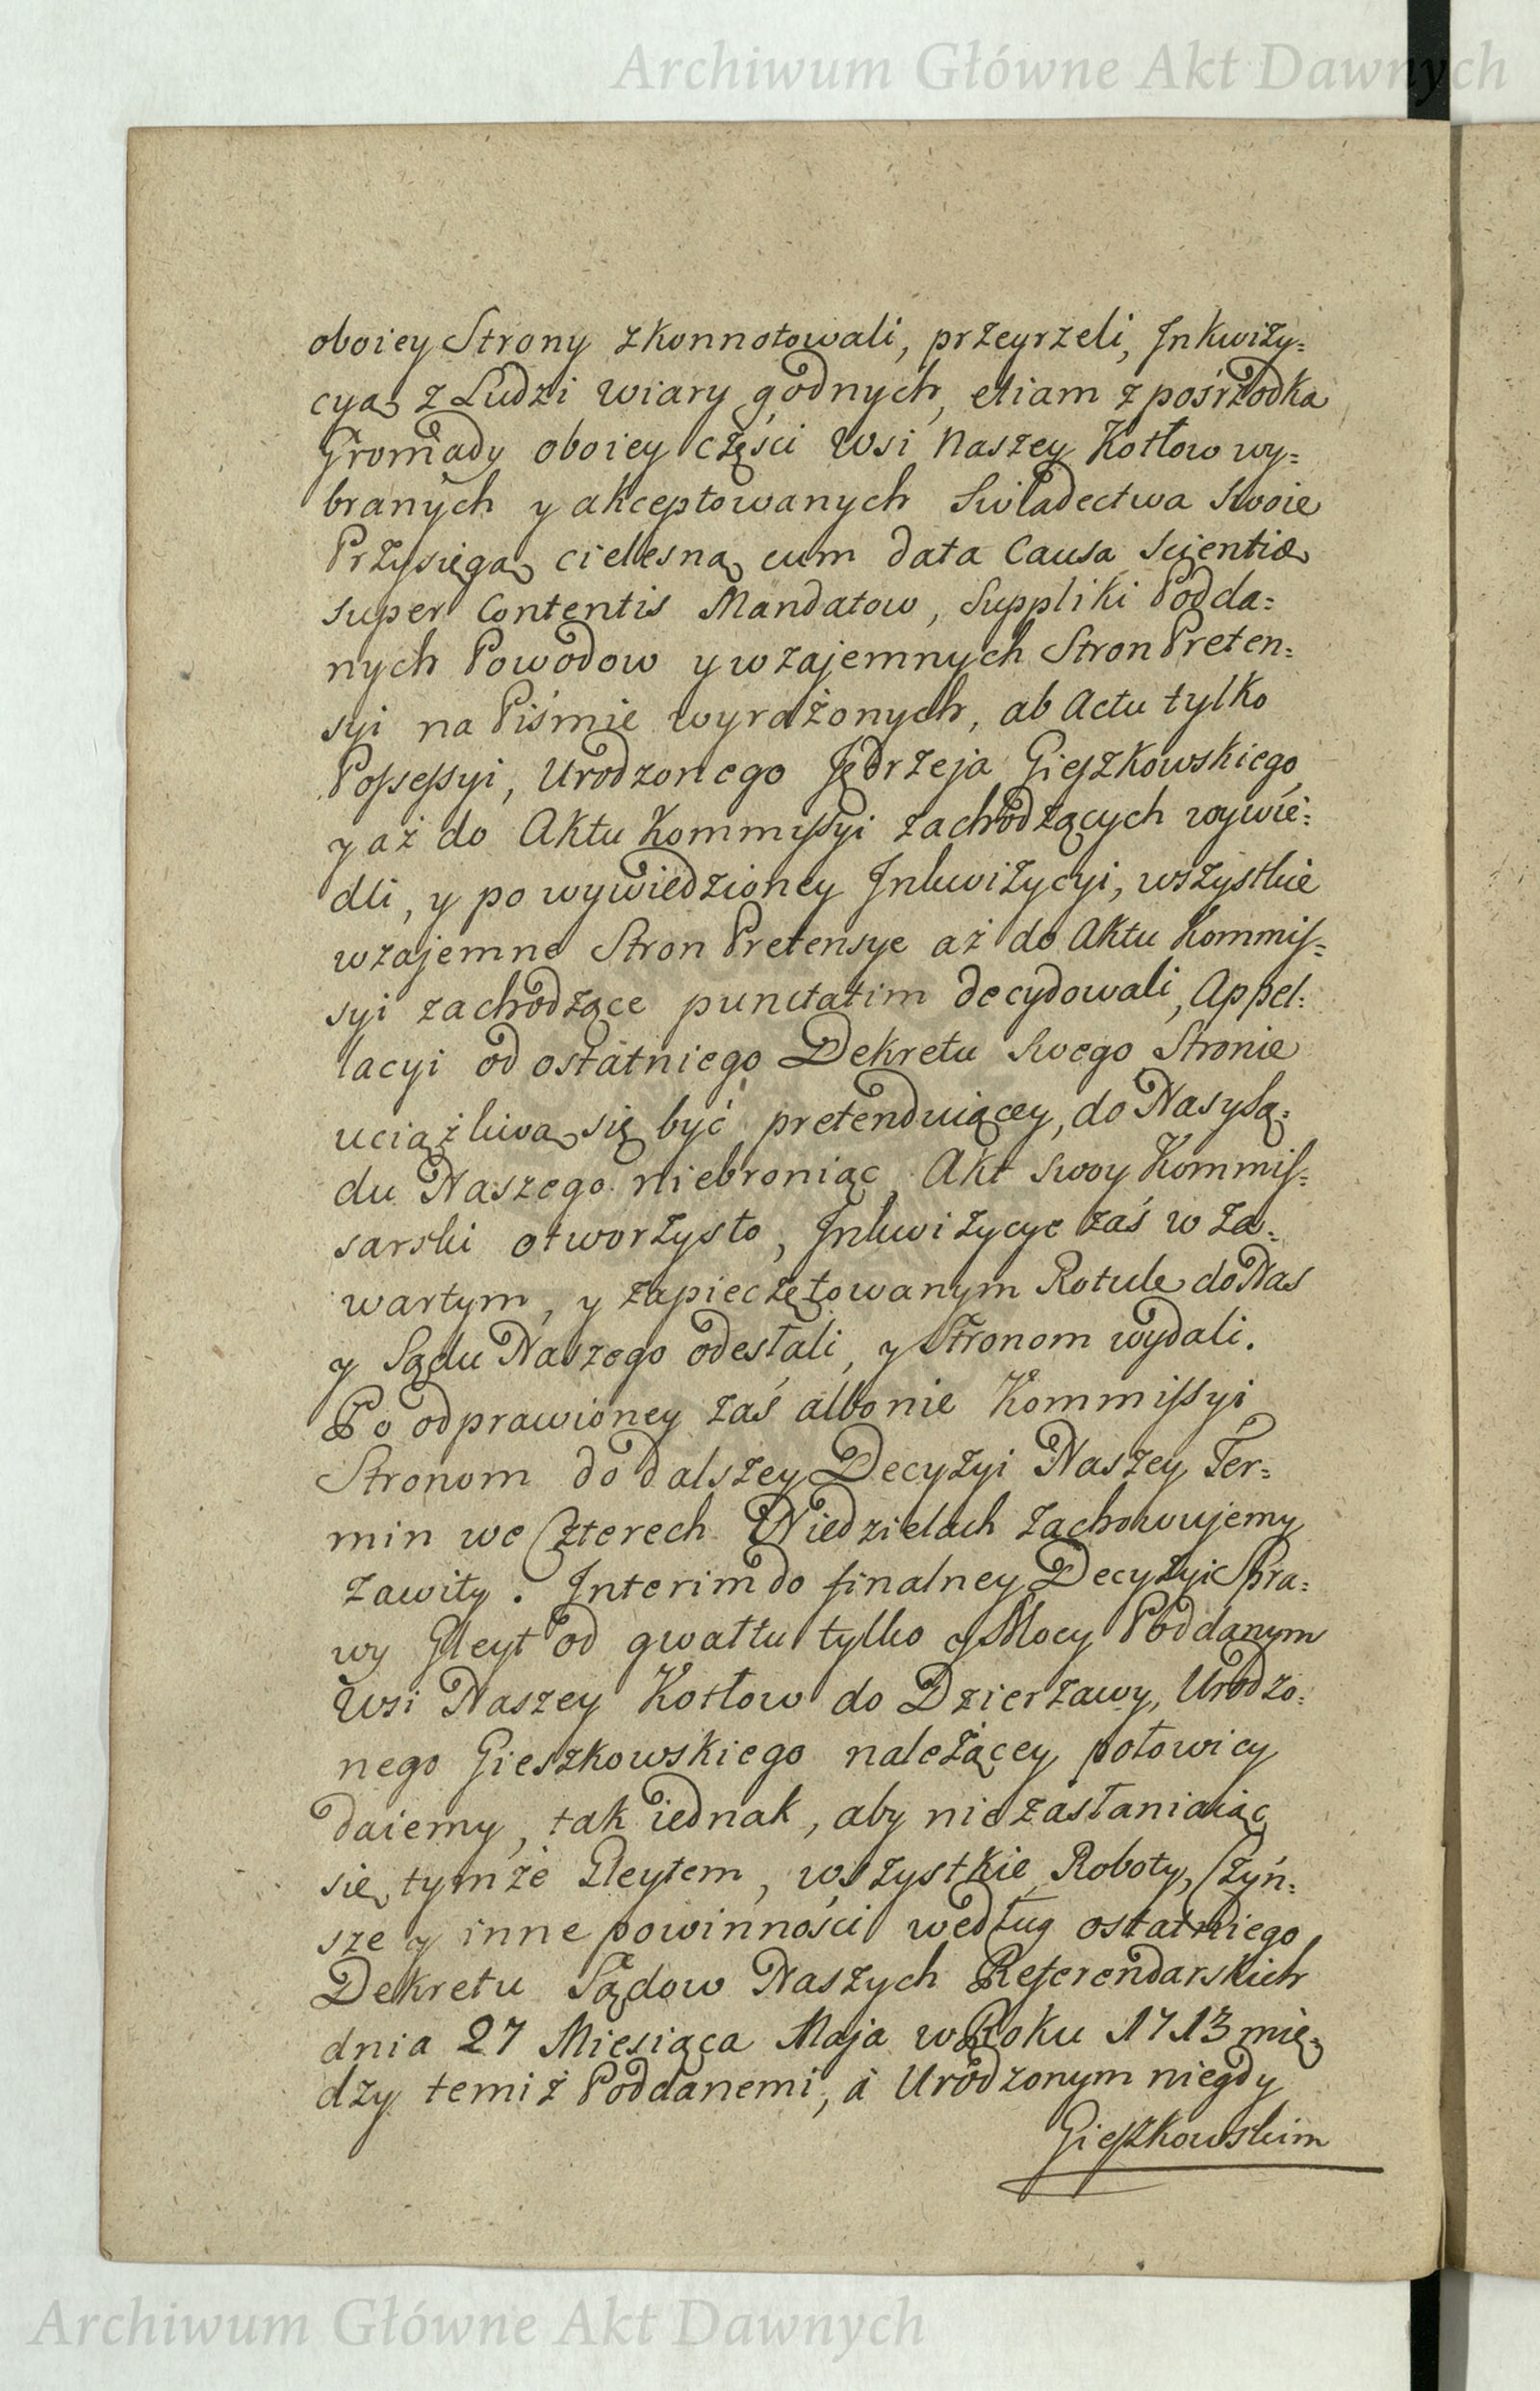 Archiwum Główne Akt Dawnych
oboiey Strony zkonnotowali, przeyrzeli, Inkwizy=
cyą z Ludzi wiary godnych, etiam z pośrzodka
Gromady oboiey części Wsi Naszey Kotłow wy=
branych y akceptowanych Swiadectwa swoie
Przysięgą cielesną cum data Causa scientiæ
super Contentis Mandatow, Suppliki Podda=
nych Powodow y wzajemnych Stron Preten=
syi na Piśmie wyrażonych, ab Actu tylko
Possessyi, Urodzonego Jędrzeja Gieszkowskiego
y aż do Aktu Kommissyi zachodzących wywie=
dli, y po wywiedzioney Inkwizycyi, wszystkie
wzajemne Stron Pretensye aż do Aktu Kommis=
syi zachodzące punctatim decydowali, Appel=
lacyi od ostatniego Dekretu swego Stronie
uciążliwą się być pretenduiącey, do Nas y Są=
du Naszego niebroniąc, Akt swoy Kommis=
sarski otworzysto, Inkwizycye zaś w za=
wartym, y zapieczętowanym Rotule do Nas
y Sądu Naszego odesłali, y Stronom wydali.
Po odprawioney zaś albo nie Kommissyi
Stronom do dalszey Decyzyi Naszey Ter=
min we Czterech Niedzielach zachowujemy
zawity. Interim do finalney Decyzyi Spra=
wy Gleyt od gwałtu tylko y Mocy Poddanym
Wsi Naszey Kotłow do Dzierzawy, Urodzo=
nego Gieszkowskiego należącey połowicy
daiemy, tak iednak, aby nie zasłaniaiąc
się tymże Gleytem, wszystkie Roboty, Czyn=
sze y inne powinności według ostatniego
Dekretu Sądow Naszych Referendarskich
dnia 27 Miesiąca Maja w Roku 1713 mię=
dzy temiż Poddanemi, a Urodzonym niegdy
Gieszkowskim
Archiwum Główne Akt Dawnych